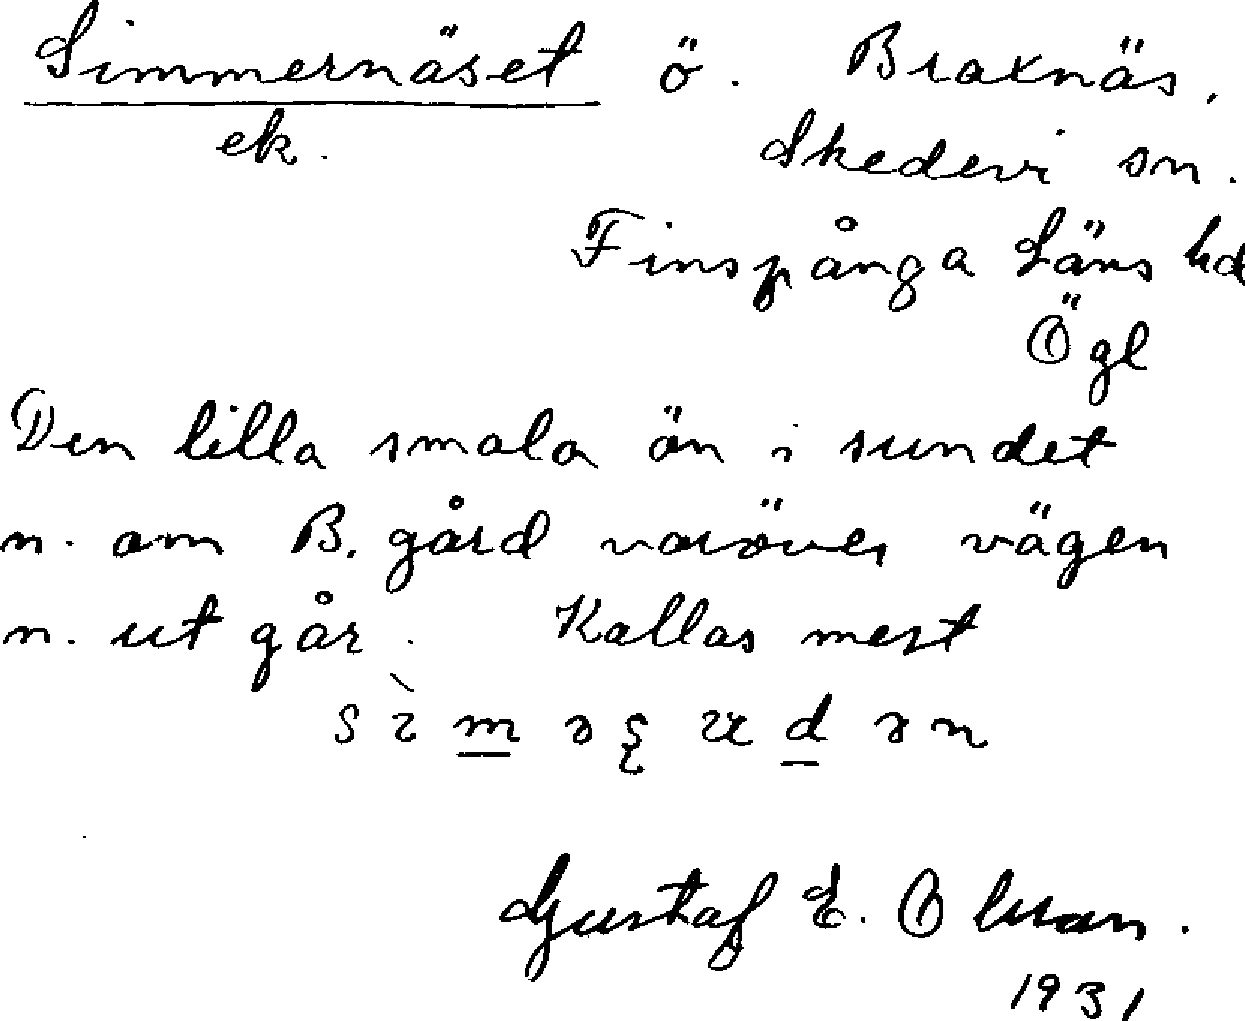 Simmernäset ö. Braxnäs,
ek. Skedevi sn.
Finspånga Läns hd
Ögl
Den lilla smala ön i sundet
n. om B. gård varöver vägen
n. ut går. Kallas mest
Gustaf E. Olsson.
1931